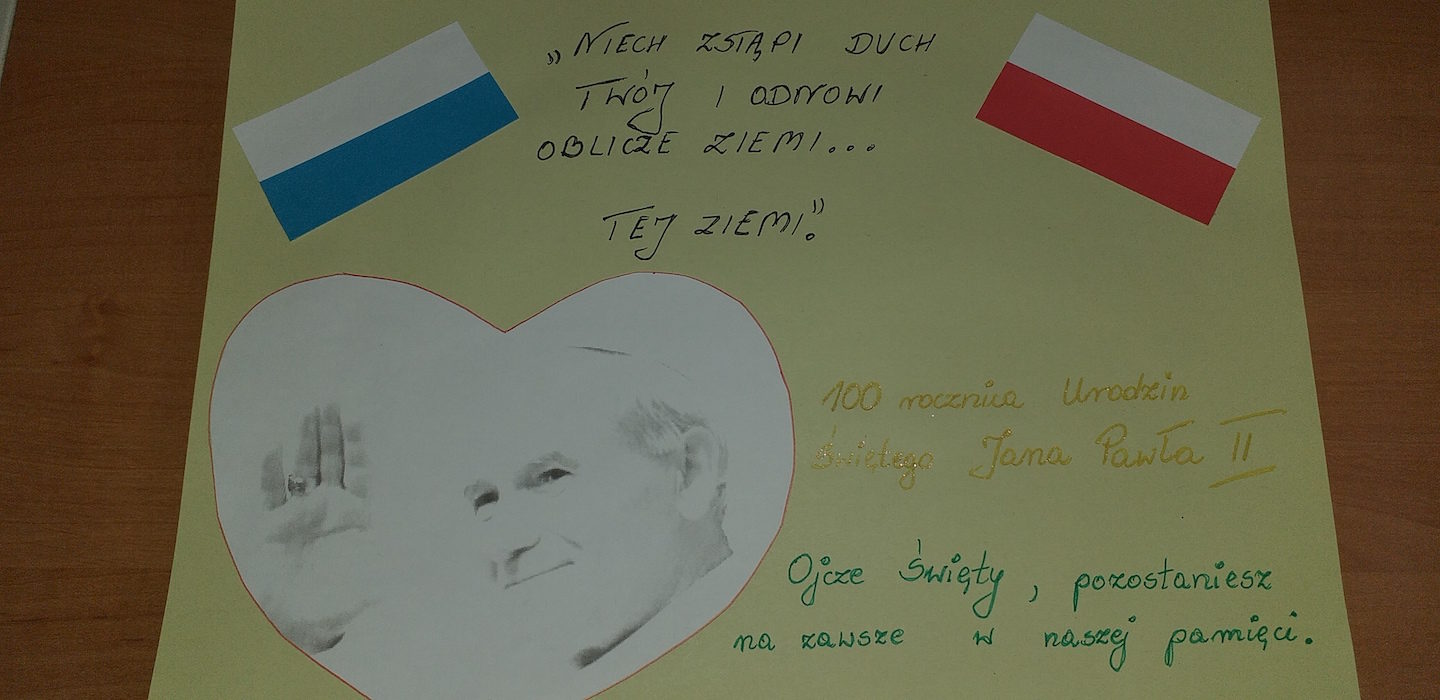 „NIECH ZSTĄPI DUCH
TWÓJ I ODNOWI
OBLICZE ZIEMI...
TEJ ZIEMI.”
100 rocznica Urodzin
Świętego Jana Pawła II
Ojcze Święty, pozostaniesz
na zawsze w naszej pamięci.